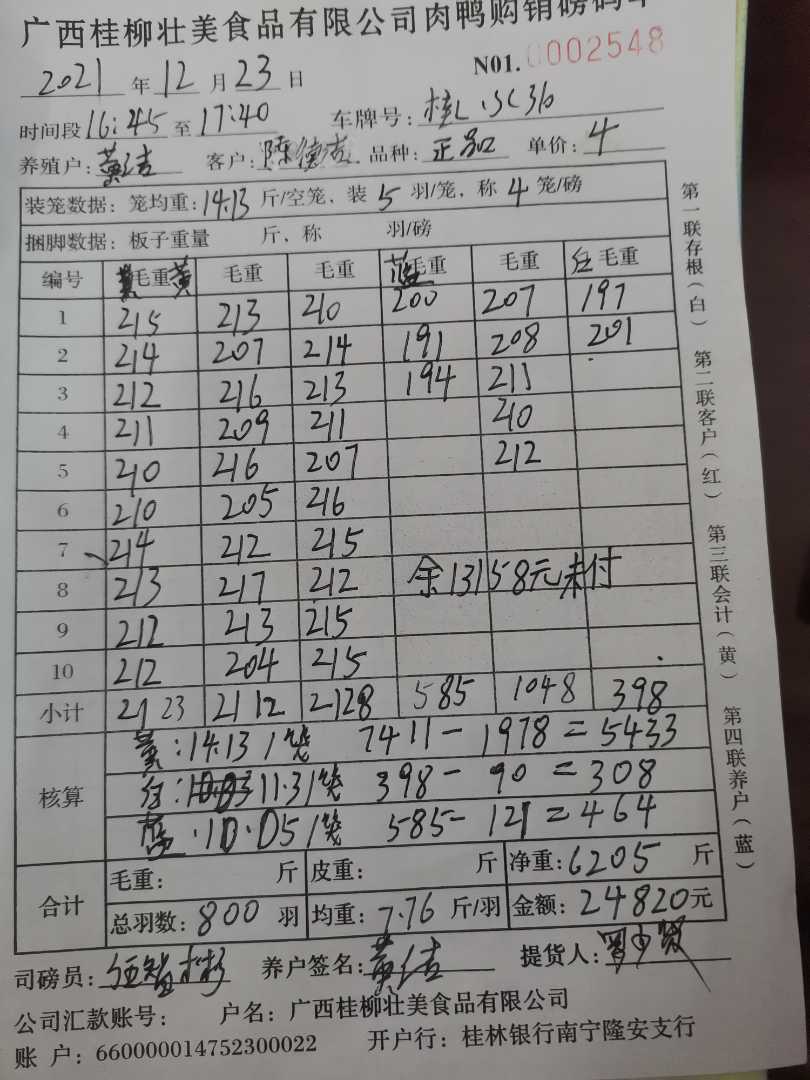 广西桂柳壮美食品有限公司肉鸭购销磅码单
2021 年 12 月 23 日 N01. 0002548
时间段 16:45 至 17:40 车牌号:
养殖户: 黄洁 客户: 陈德吉 品种: 正品 单价: 4
装笼数据: 笼均重: 14.13 斤/空笼, 装 5 羽/笼, 称 4 笼/磅
捆脚数据: 板子重量 斤, 称 羽/磅
编号 黄毛重黄 毛重 毛重 蓝毛重 毛重 红毛重
1 215 213 210 200 207 197
2 214 207 214 191 208 201
3 212 216 213 194 211
4 211 209 211 210
5 210 216 207 212
6 210 205 216
7 214 212 215
8 213 217 212 余13158元未付
9 212 213 215
10 212 204 215
小计 2123 2112 2128 585 1048 398
核算 黄:14.13/笼 7411-1978=5433
红:11.31/笼 398-90=308
蓝:10.05/笼 585-121=464
合计 毛重: 斤 皮重: 斤 净重: 6205 斤
总羽数: 800 羽 均重: 7.76 斤/羽 金额: 24820元
司磅员: 养户签名: 黄洁 提货人:
公司汇款账号: 户名: 广西桂柳壮美食品有限公司
账 户: 660000014752300022 开户行: 桂林银行南宁隆安支行
第一联存根(白) 第二联客户(红) 第三联会计(黄) 第四联养户(蓝)